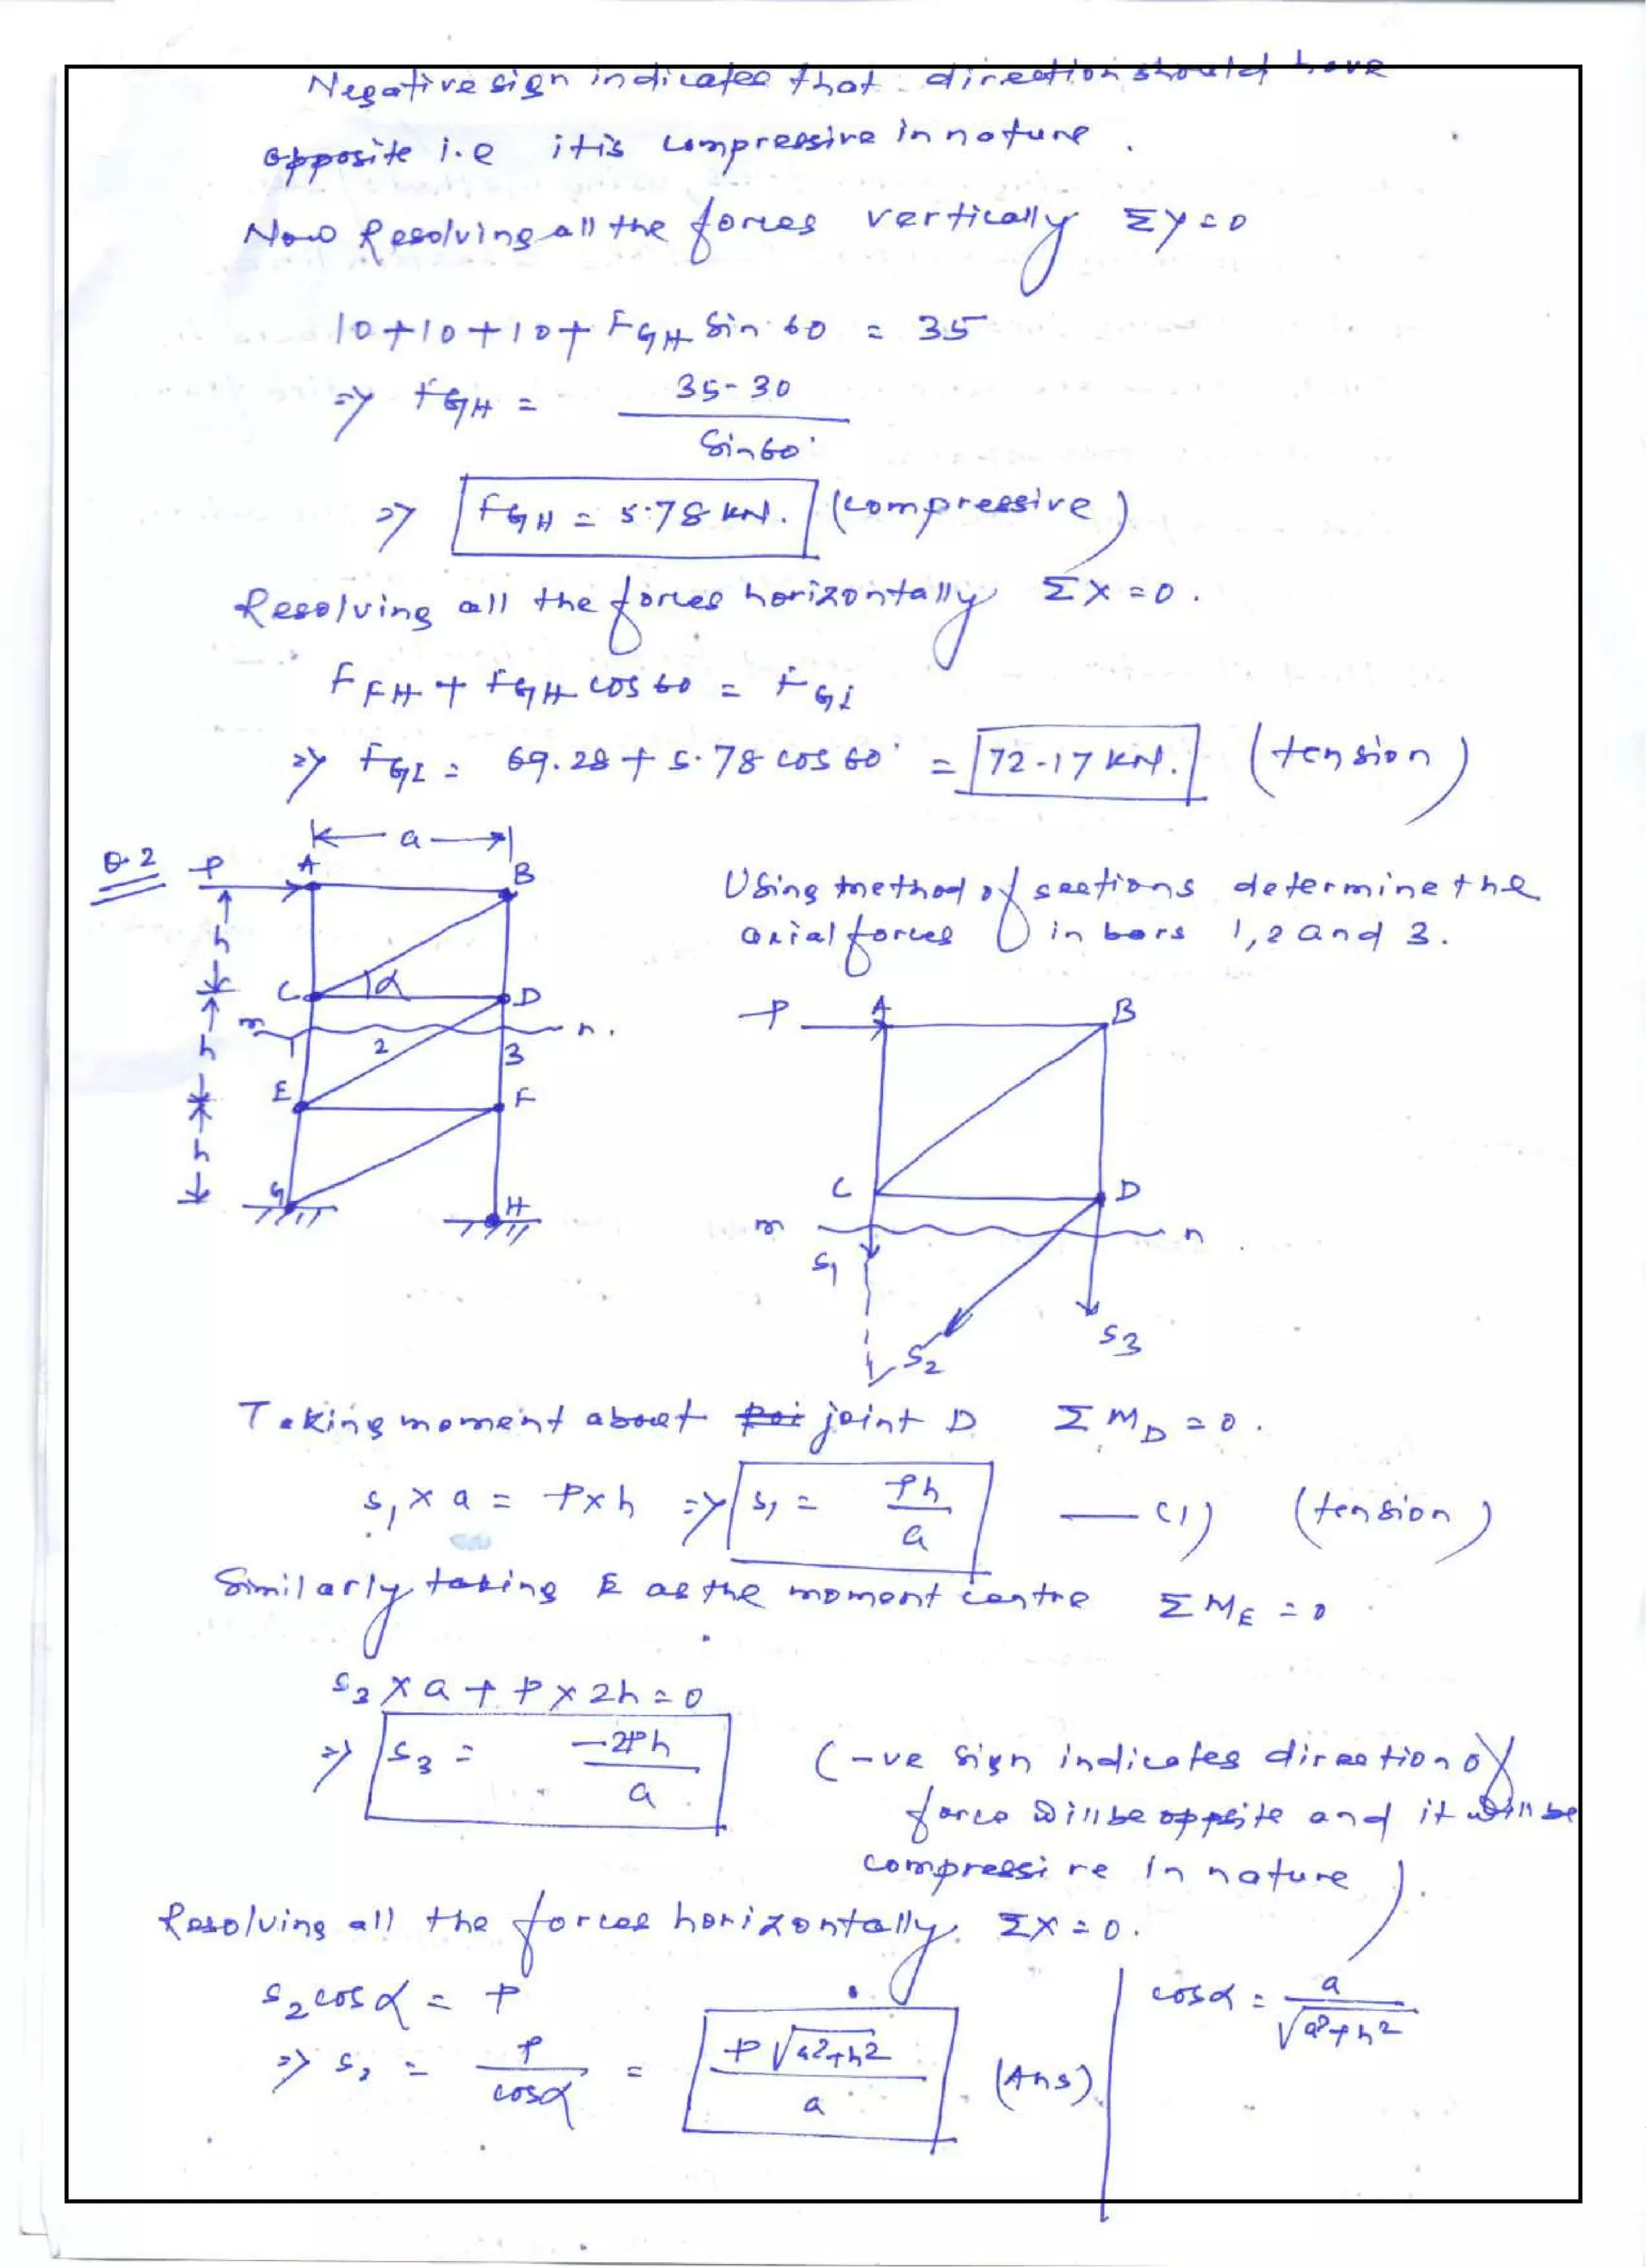 Negative sign indicates that direction should have
opposite i.e it is compressive in nature.
Now Resolving all the forces vertically ΣY=0
10+10+10+ F_GH Sin 60 = 35
=> F_GH = (35-30)/(Sin60°)
=> F_GH = 5.78 kN. (compressive)
Resolving all the forces horizontally ΣX=0.
F_FH + F_GH cos 60 = F_GI
=> F_GI = 69.28 + 5.78 cos 60° = 72.17 kN. (tension)
Q.2
a
P A B
h
C α D
m n.
h 1 2 3
E F
h
G H
Using method of sections determine the
axial forces in bars 1, 2 and 3.
P A B
C D
m n
S1
S2 S3
Taking moment about joint D ΣM_D = 0.
S1 × a = P×h => S1 = Ph/a — (1) (tension)
Similarly taking E as the moment centre ΣM_E = 0
S3 × a + P × 2h = 0
=> S3 = -2Ph/a (-ve sign indicates direction of
force will be opposite and it will be
compressive in nature).
Resolving all the forces horizontally. ΣX = 0.
S2 cos α = P
cosα = a/√(a²+h²)
=> S2 = P/cosα = P√(a²+h²)/a (Ans)